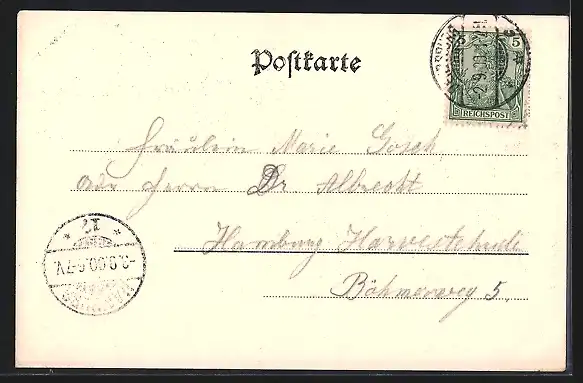 Postkarte
5
REICHSPOST
-2.9.00.
Fräulein Marie Gosch
adr Herrn Dr Albrecht
Hamburg Harvestehude
Böhmersweg 5.
* 12 *
-3.9.00.6-7V.